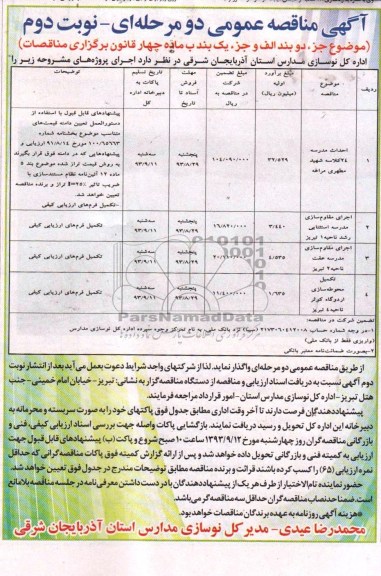 آگهی مناقصه عمومی دو مرحله‌ای - نوبت دوم
(موضوع جزء دو بند الف و جزء یک بند ب ماده چهار قانون برگزاری مناقصات)
اداره کل نوسازی مدارس استان آذربایجان شرقی در نظر دارد اجرای پروژه‌های مشروحه زیر را
ردیف
موضوع مناقصه
مبلغ برآورد اولیه (میلیون ریال)
مبلغ تضمین شرکت در مناقصه به ریال
مهلت فروش اسناد تا تاریخ
تاریخ تسلیم پاکات به دبیرخانه اداره کل
توضیحات
۱
احداث مدرسه ۲۴کلاسه شهید مطهری مراغه
پنجشنبه ۹۳/۸/۲۹
سه‌شنبه ۹۳/۹/۱۱
پیشنهادهای قابل قبول با استفاده از
دستورالعمل تعیین دامنه قیمت‌های
متناسب موضوع بخشنامه شماره
ارزیابی و
پیشنهادهایی که در دامنه فوق قرار بگیرند
به روش قیمت تراز شده موضوع بند
ماده ۱۲ آئین‌نامه نظام مستندسازی با
تراز و برنده مناقصه
تعیین خواهد شد.
-تکمیل فرم‌های ارزیابی کیفی
۲
اجرای مقاوم‌سازی مدرسه استثنایی رشد ناحیه۱ تبریز
۳/۴۴۰
پنجشنبه ۹۳/۸/۲۹
سه‌شنبه ۹۳/۹/۱۱
تکمیل فرم‌های ارزیابی کیفی
۳
اجرای مقاوم‌سازی مدرسه عفت ناحیه۲ تبریز
۴/۵۳۵
پنجشنبه ۹۳/۸/۲۹
سه‌شنبه ۹۳/۹/۱۱
تکمیل فرم‌های ارزیابی کیفی
۴
تکمیل محوطه‌سازی اردوگاه کوثر ناحیه۴ تبریز
۱/۹۳۵
پنجشنبه ۹۳/۸/۲۹
سه‌شنبه ۹۳/۹/۱۱
تکمیل فرم‌های ارزیابی کیفی
ParsNamadData
تضمین شرکت در مناقصه:
۱-در وجه شماره حساب ۲۱۷۳۰۶۰۴۱۲۰۰۸ (سیبا) نزد بانک ملی، به نام تمرکز وجوه سپرده اداره کل نوسازی مدارس
(واریزی فقط از بانک ملی)
۲-بصورت ضمانت‌نامه معتبر بانکی
از طریق مناقصه عمومی دو مرحله‌ای واگذار نماید. لذا از شرکتهای واجد شرایط دعوت بعمل می‌آید بعد از انتشار نوبت
دوم آگهی نسبت به دریافت اسناد ارزیابی و مناقصه از دستگاه مناقصه‌گزار به نشانی: تبریز- خیابان امام خمینی- جنب
هتل تبریز- اداره کل نوسازی مدارس استان- امور قرارداد مراجعه فرمایند.
پیشنهاددهندگان فرصت دارند تا آخر وقت اداری مطابق جدول فوق پاکتهای خود را به صورت سربسته و محرمانه به
دبیرخانه این اداره کل تحویل و رسید دریافت نمایند. بازگشایی پاکات واصله جهت بررسی اسناد ارزیابی کیفی، فنی و
بازرگانی مناقصه‌گران روز چهارشنبه مورخ ۱۳۹۳/۹/۱۲ ساعت ۱۰ صبح شروع و پاکت (ب) پیشنهادهای قابل قبول جهت
ارزیابی به کمیته فنی و بازرگانی تحویل داده خواهد شد و پس از ارائه گزارش کمیته فوق پاکات مناقصه گرانی که حداقل
نمره ارزیابی (۶۵) را کسب کرده باشند قرائت و برنده مناقصه مطابق توضیحات مندرج در جدول فوق تعیین خواهد شد.
حضور نماینده تام‌الاختیار از طرف هر یک از پیشنهاددهندگان با در دست داشتن معرفی‌نامه در جلسه مناقصه بلامانع
است. ضمناً حد نصاب مناقصه گران حداقل سه مناقصه گر می‌باشد.
*هزینه آگهی روزنامه به عهده برندگان مناقصات خواهد بود.
محمدرضا عیدی - مدیر کل نوسازی مدارس استان آذربایجان شرقی